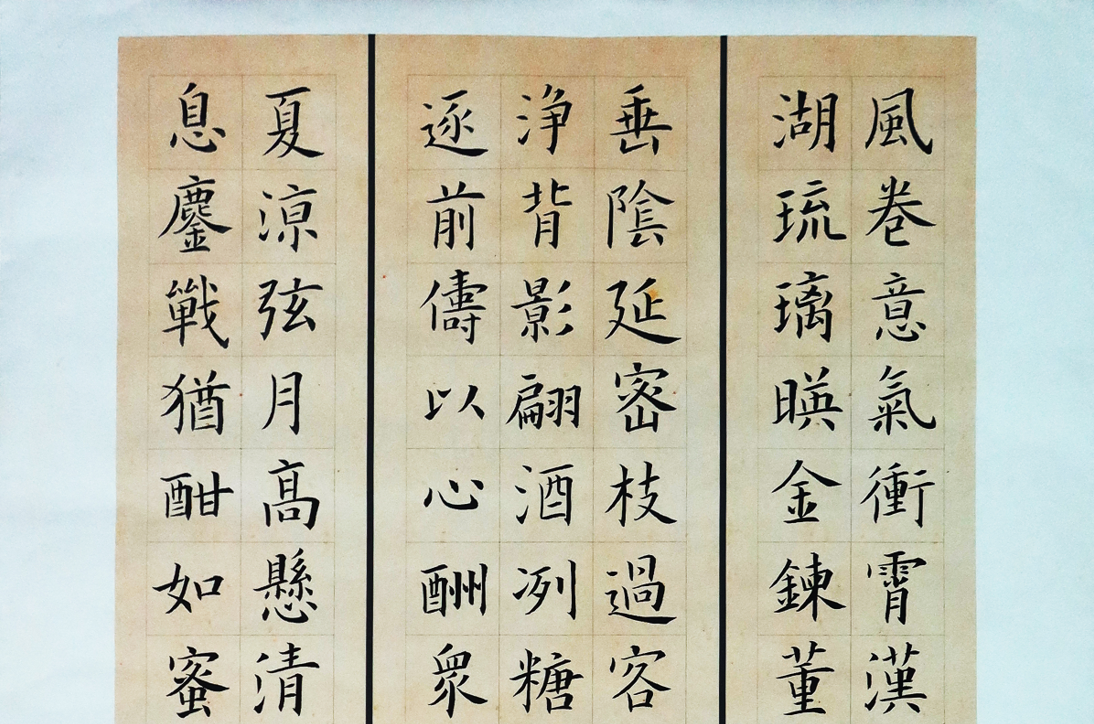 風卷意氣衝霄漢
湖琉璃暎金鍊董
垂陰延密枝過容
浄背影翩酒冽糖
逐前儔以心酬衆
夏涼弦月高懸清
息鏖戰猶酣如蜜